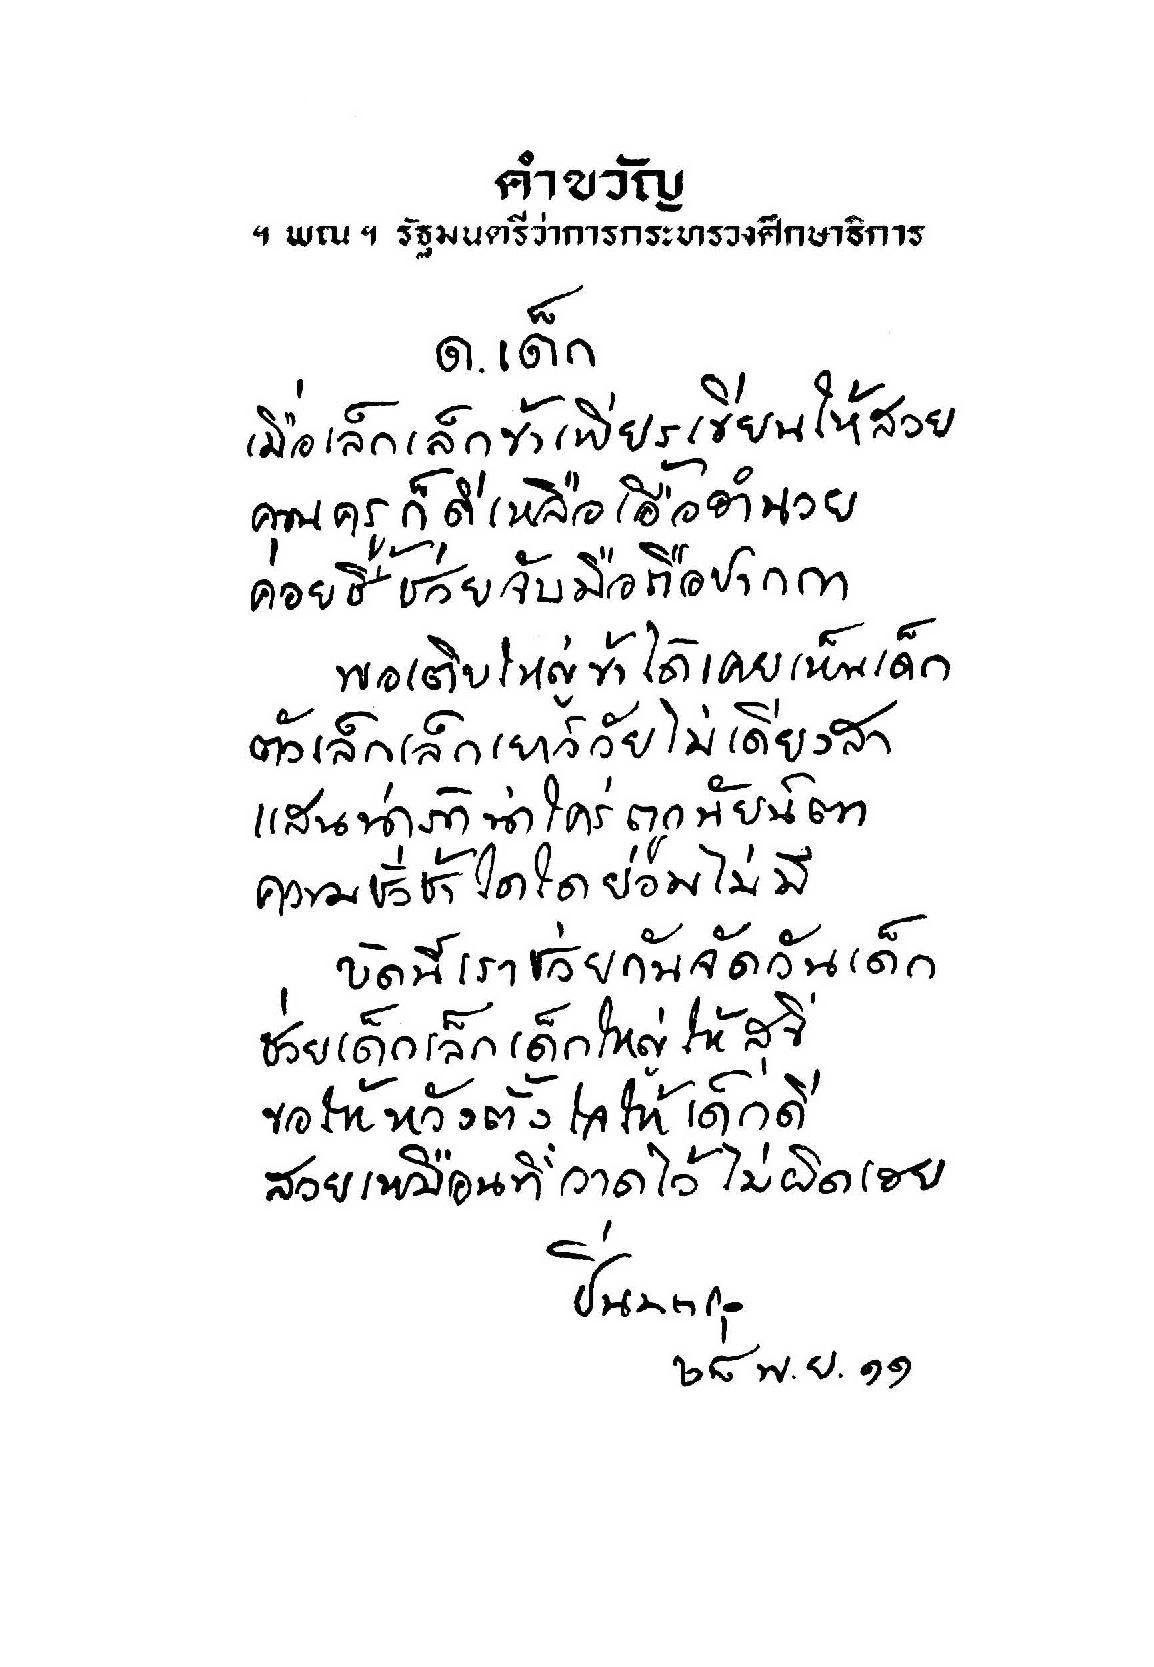 คำขวัญ
ฯ พณ ฯ รัฐมนตรีว่าการกระทรวงศึกษาธิการ
ด.เด็ก
เมื่อเล็กเล็กข้าเพียรเขียนให้สวย
คุณครูก็ดีเหลือเอื้ออำนวย
ค่อยชี้ช่วยจับมือถือปากกา
พอเติบใหญ่ข้าได้เคยเห็นเด็ก
ตัวเล็กเล็กเยาว์วัยไม่เดียงสา
แสนน่ารักน่าใคร่ถูกนัยน์ตา
ความชั่วช้าใดใดย่อมไม่มี
บัดนี้เราช่วยกันจัดวันเด็ก
ช่วยเด็กเล็กเด็กใหญ่ให้สุขี
ขอให้หวังตั้งใจให้เด็กดี
สวยเหมือนที่วาดไว้ไม่ผิดเอย
ปิ่นมาลากุล
๒๘ พ.ย. ๑๑